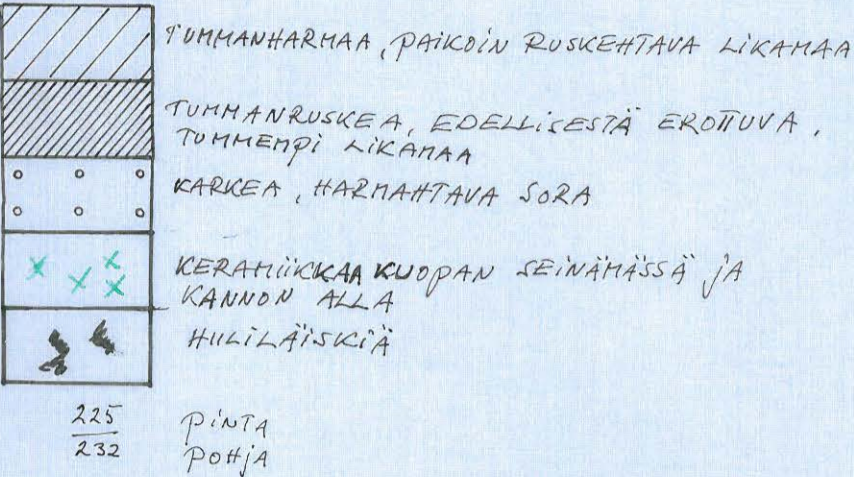 TUMMANHARMAA, PAIKOIN RUSKEHTAVA LIKAMAA
TUMMANRUSKEA, EDELLISESTÄ EROTTUVA,
TUMMEMPI LIKAMAA
KARKEA, HARMAHTAVA SORA
KERAMIIKKAA KUOPAN SEINÄMÄSSÄ JA
KANNON ALLA
HIILILÄISKIÄ
225 PINTA
232 POHJA